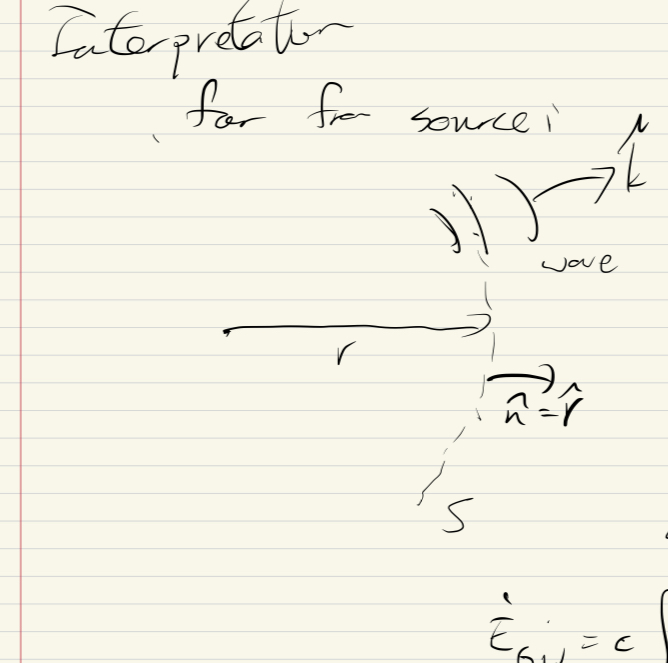 Interpretation
far from source:
k̂
wave
r
n̂ = r̂
S
Ė_GW = c ∫